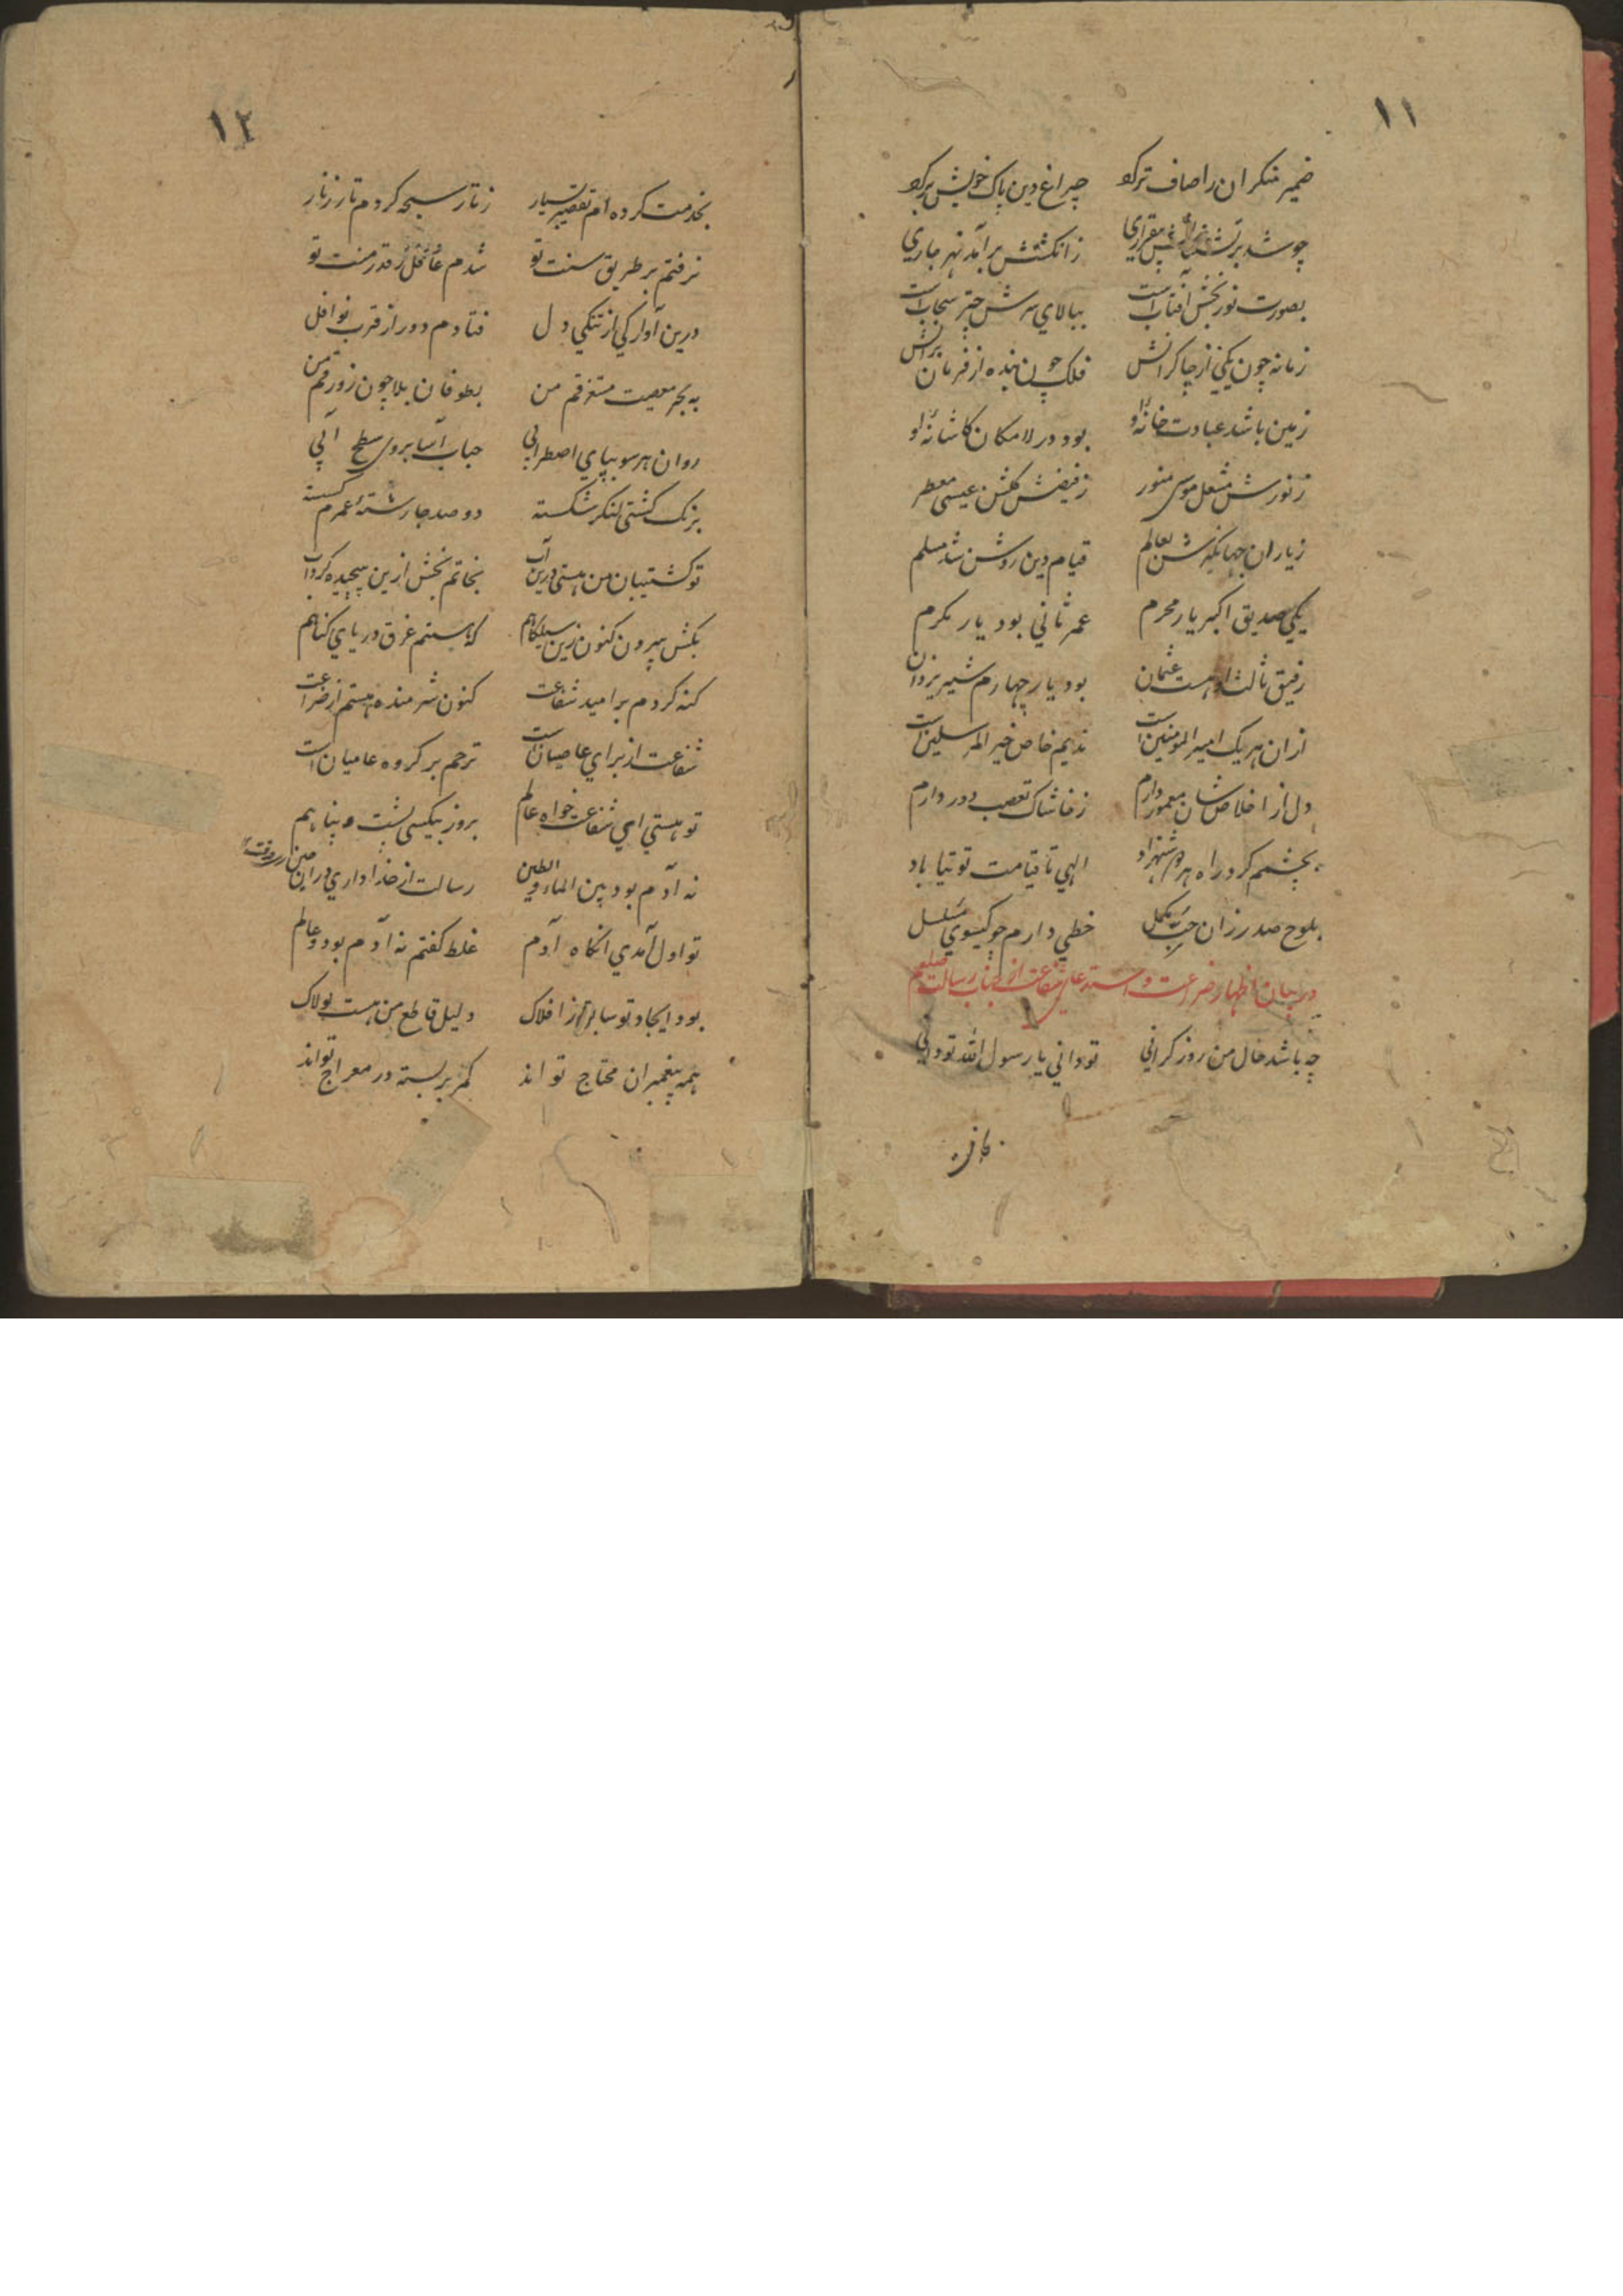 ۱۱
ضمیر منکران را صاف تر کو چراغ دین پاک خویش بر کو
چو شد بر تشنه بیقراری ز انگشتش برآمد نهر جاری
بصورت نور بخش آفتاب است ببالای سرش چتر سحاب است
زمانه چون یکی از چاکرانش فلک چون بنده از فرمان برانش
زمین باشد عبادت خانهٔ او بود در لامکان کاشانهٔ او
ز نورش مشعل موسی منور ز فیضش گلشن عیسی معطر
ز یاران جهانگیرش بعالم قیام دین روشن شد مسلم
یکی صدیق اکبر یار محرم عمر ثانی بود یار مکرم
رفیق ثالث او هست عثمان بود یار چهارم شیر یزدان
ازان هر یک امیر المومنین است ندیم خاص خیر المرسلین است
دل از اخلاص شان معمور دارم ز خاشاک تعصب دور دارم
بچشمم کرد راه هر دو شهزاد الهی تا قیامت توتیا باد
بلوح صدر زان حب مکمل خطی دارم چو کیسوی مسلسل
در بیان اظهار ضراعت و استدعای شفاعت از جناب رسالت صلعم
چه باشد حال من روز کرانی تو دانی یا رسول الله تو دانی
۱۲
بخدمت کرده ام تقصیر بسیار ز تار سبحه کردم تار زنار
نرفتم بر طریق سنت تو شدم غافل ز قدر منت تو
درین آوارکی از تنکی دل فتادم دور از قرب نوافل
به بحر معصیت مستغرقم من بطوفان بلا چون زورقم من
روان هر سو بپای اضطرابی حباب آسا بروی سطح آبی
برنک کشتی لنکر شکسته دو صد جا رشتهٔ عمرم کسسته
تو کشتیبان من هستی درین آب نجاتم بخش ازین پیچیده کرداب
بکش بیرون کنون زین سیلکاهم که هستم غرق دریای کناهم
کنه کردم بر امید شفاعت کنون شرمنده هستم از ضراعت
شفاعت از برای عاصیان است ترحم بر کروه عامیان است
تو هستی ای شفاعت خواه عالم بروز بیکسی پشت و پناهم
نه آدم بود بین الماء و الطین رسالت از خدا داری دران حین
تو اول آمدی انکاه آدم غلط کفتم نه آدم بود و عالم
بود ایجاد تو سابق ز افلاک دلیل قاطع من هست لولاک
همه پیغمبران محتاج تو اند کمر بر بسته در معراج تو اند